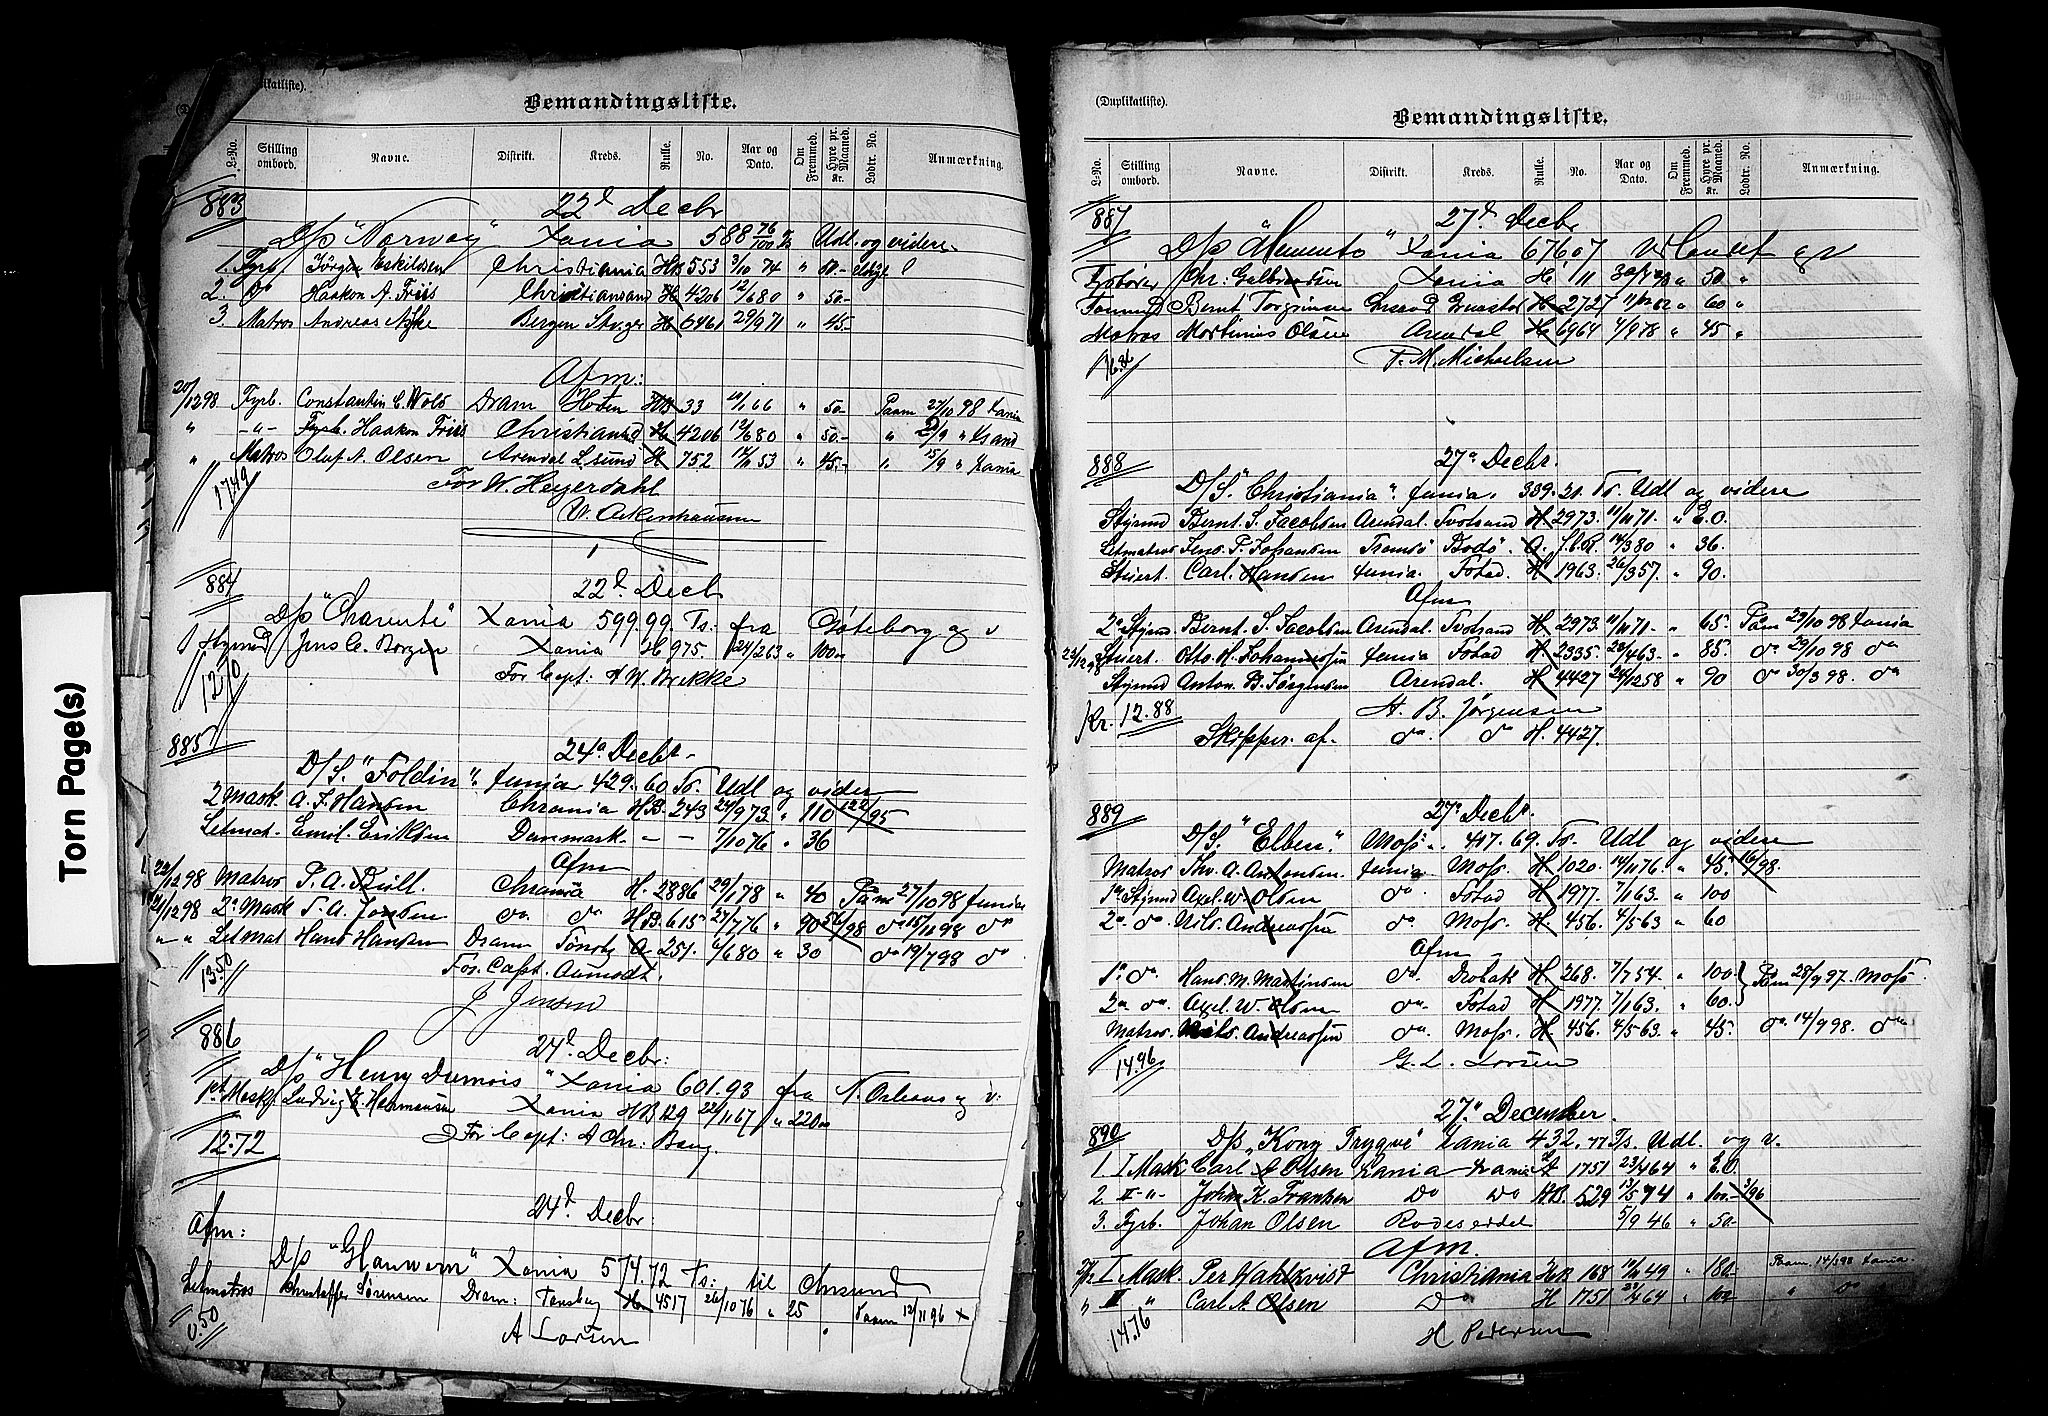 Torn Page(s)
Bemandingsliste.
L-No. Stilling ombord. Navne. Distrikt. Kreds. Rulle. No. Aar og Dato. Om Fremmed. Hyre pr. Maaned. Kr. Lodtr. No. Anmærkning.
883 22d Decbr
D/s "Norway" Xania 588 76/100 Ts Udl. og videre
1. Fyrb. Jörgen Eskildsen Christiania HB 553 3/10 74 " 50.-
2. Do Haakon A. Friis Christiansand H 4206 12/6 80 " 50.-
3. Matros Andreas Aske Bergen Stvger H 6461 29/9 71 " 45.-
Afm:
20/12 98 Fyrb. Constantin C. Wold Dram Holen HB 33 1/66 " 50.- Paam 27/10 98 Xania
" -"- Fyrb. Haakon Friis Christiansd H 4206 12/6 80 " 50.- " 2/9 " Xsand
" Matros Oluf A. Olsen Arendal L.sund H 752 14/11 53 " 45.- " 15/9 " Xania
1749 For W. Heyerdahl
W. Ackenhausen
884 22d Decb
D/s "Charente" Xania 599.99 Ts. fra Göteborg og v
1 Styrmd Jens C. Borgen Xania H 975. 24/2 63 " 100.-
1270 For Capt: A W. Brekke
885 24a Decbr.
D/S. "Foldin". Xania 429.60 Ts. Udl og videre
2 Mask A. F. Hansen Chrania HB. 243 24/9 73. " 110 122/95
Letmat. Emil Eriksen Danmark - - 7/10 76 " 36
Afm
22/12 98 Matros P. A. Bull. Chrania H. 2886 29/1 78 " 40 Paam 27/10 98 Xania
21/12 98 2a Mask T. A. Jonsen do. do HB. 615 24/7 76 " 90 56/98 do 15/11 98 do
" " Letmat Hans Hansen Dram Tönsbg A. 251. 6/6 80 " 30 do 19/7 98 do
13.50 For Capt. Aamodt.
J Jensen
886 24d. Decbr:
D/s "Henry Dumois" Xania 601.93 fra N. Orleans og v:
1st Mask Ludvig E. Hermansen Xania HB 129 22/11 67 " 220.-
12.72 For Capt: A Chr: Bang.
24d. Decbr:
Afm:
D/s "Glanwern" Xania 574.72 Ts: til Chrsund
Letmatros Christoffer Sörensen Dram: Tönsbog H 4517 26/10 76 " 25 Paam 12/11 96 X
0.50 A Larsen
(Duplikatliste).
Bemandingsliste.
L-No. Stilling ombord. Navne. Distrikt. Kreds. Rulle. No. Aar og Dato. Om Fremmed. Hyre pr. Maaned. Kr. Lodtr. No. Anmærkning.
887 27d. Decbr
D/s "Memento" Xania 676 07 Udlandet og v
Fyrböter Chr: Gulbrandsen Xania H 11 " 50 "
Tömmrmd Bernt Torgrimsen H 2727 11/12 62 " 60 "
Matros Martinius Olsen Arendal H 6964 4/9 78 " 45 "
16.86 P. M. Michaelsen
888 27a Decbr.
D/S. "Christiania". Xania. 339.21. Ts. Udl og videre
Styrmd Bernt. S. Jacobsen Arendal. Tvetsand H 2973. 11/11 71. "
Letmatros Jens. P. Johansen Tromsö Bodö. A. 14/3 80 " 36.
Stuert. Carl. Hansen Xania. Fstad. H 1963. 26/3 57. " 90.
Afm
2a Styrmd Bernt. S. Jacobsen Arendal. Tvetsand H 2973. 11/11 71. " 65. Paam 29/10 98 Xania
22/12 98 Stuert. Otto. H. Johannessen Xania Fstad H 2335. 20/4 63. " 85. do 29/10 98 do
Styrmd Anton. B. Jörgensen Arendal. H 4427 24/12 58 " 90 do 30/3 98. do
Kr. 12.88 A. B. Jörgensen
Skipper. af. do. do H. 4427.
889 27a Decbr.
D/S. "Elben". Moss. 417.69. Ts. Udl og videre
Matros Thv. A. Antonsen. Xania. Moss. H 1020. 14/11 76. " 45. 16/98.
1a Styrmd Axel. W. Olsen do. Fstad H 1977. 7/1 63. " 100
2a do. Nils. Andreassen do. Moss. H 456. 4/5 63. " 60
Afm
1a. do. Hans. M. Martinsen do. Dröbak H. 268. 7/7 54. " 100. } Pam 28/9 97. Moss.
2a do Axel. W. Olsen do Fstad H 1977. 7/1 63. " 60.
Matros. Nils. Andreassen do. Moss. H. 456. 4/5 63. " 45. do. 14/9 98. do
14.96 G. L. Larsen
27d December.
890 D/s. "Kong Trygve" Xania 432.77 Ts. Udl. og v.
1. I Mask Carl A Olsen Xania Xania H 1751 23/4 64 "
2. II -"- Johan K. Fransen Do Do HB. 529 13/5 74 " 100.- 3/96
3. Fyrb. Johan Olsen Rodeseddel 5/9 46 " 50.-
Afm.
I Mask. Per Wahlkvist Christiania HB 168 14/11 49 " 180.- Paam. 14/3 98 Xania
" II " Carl A. Olsen Do H 1751 23/4 64 " 100 " Do
14.16 H Pedersen